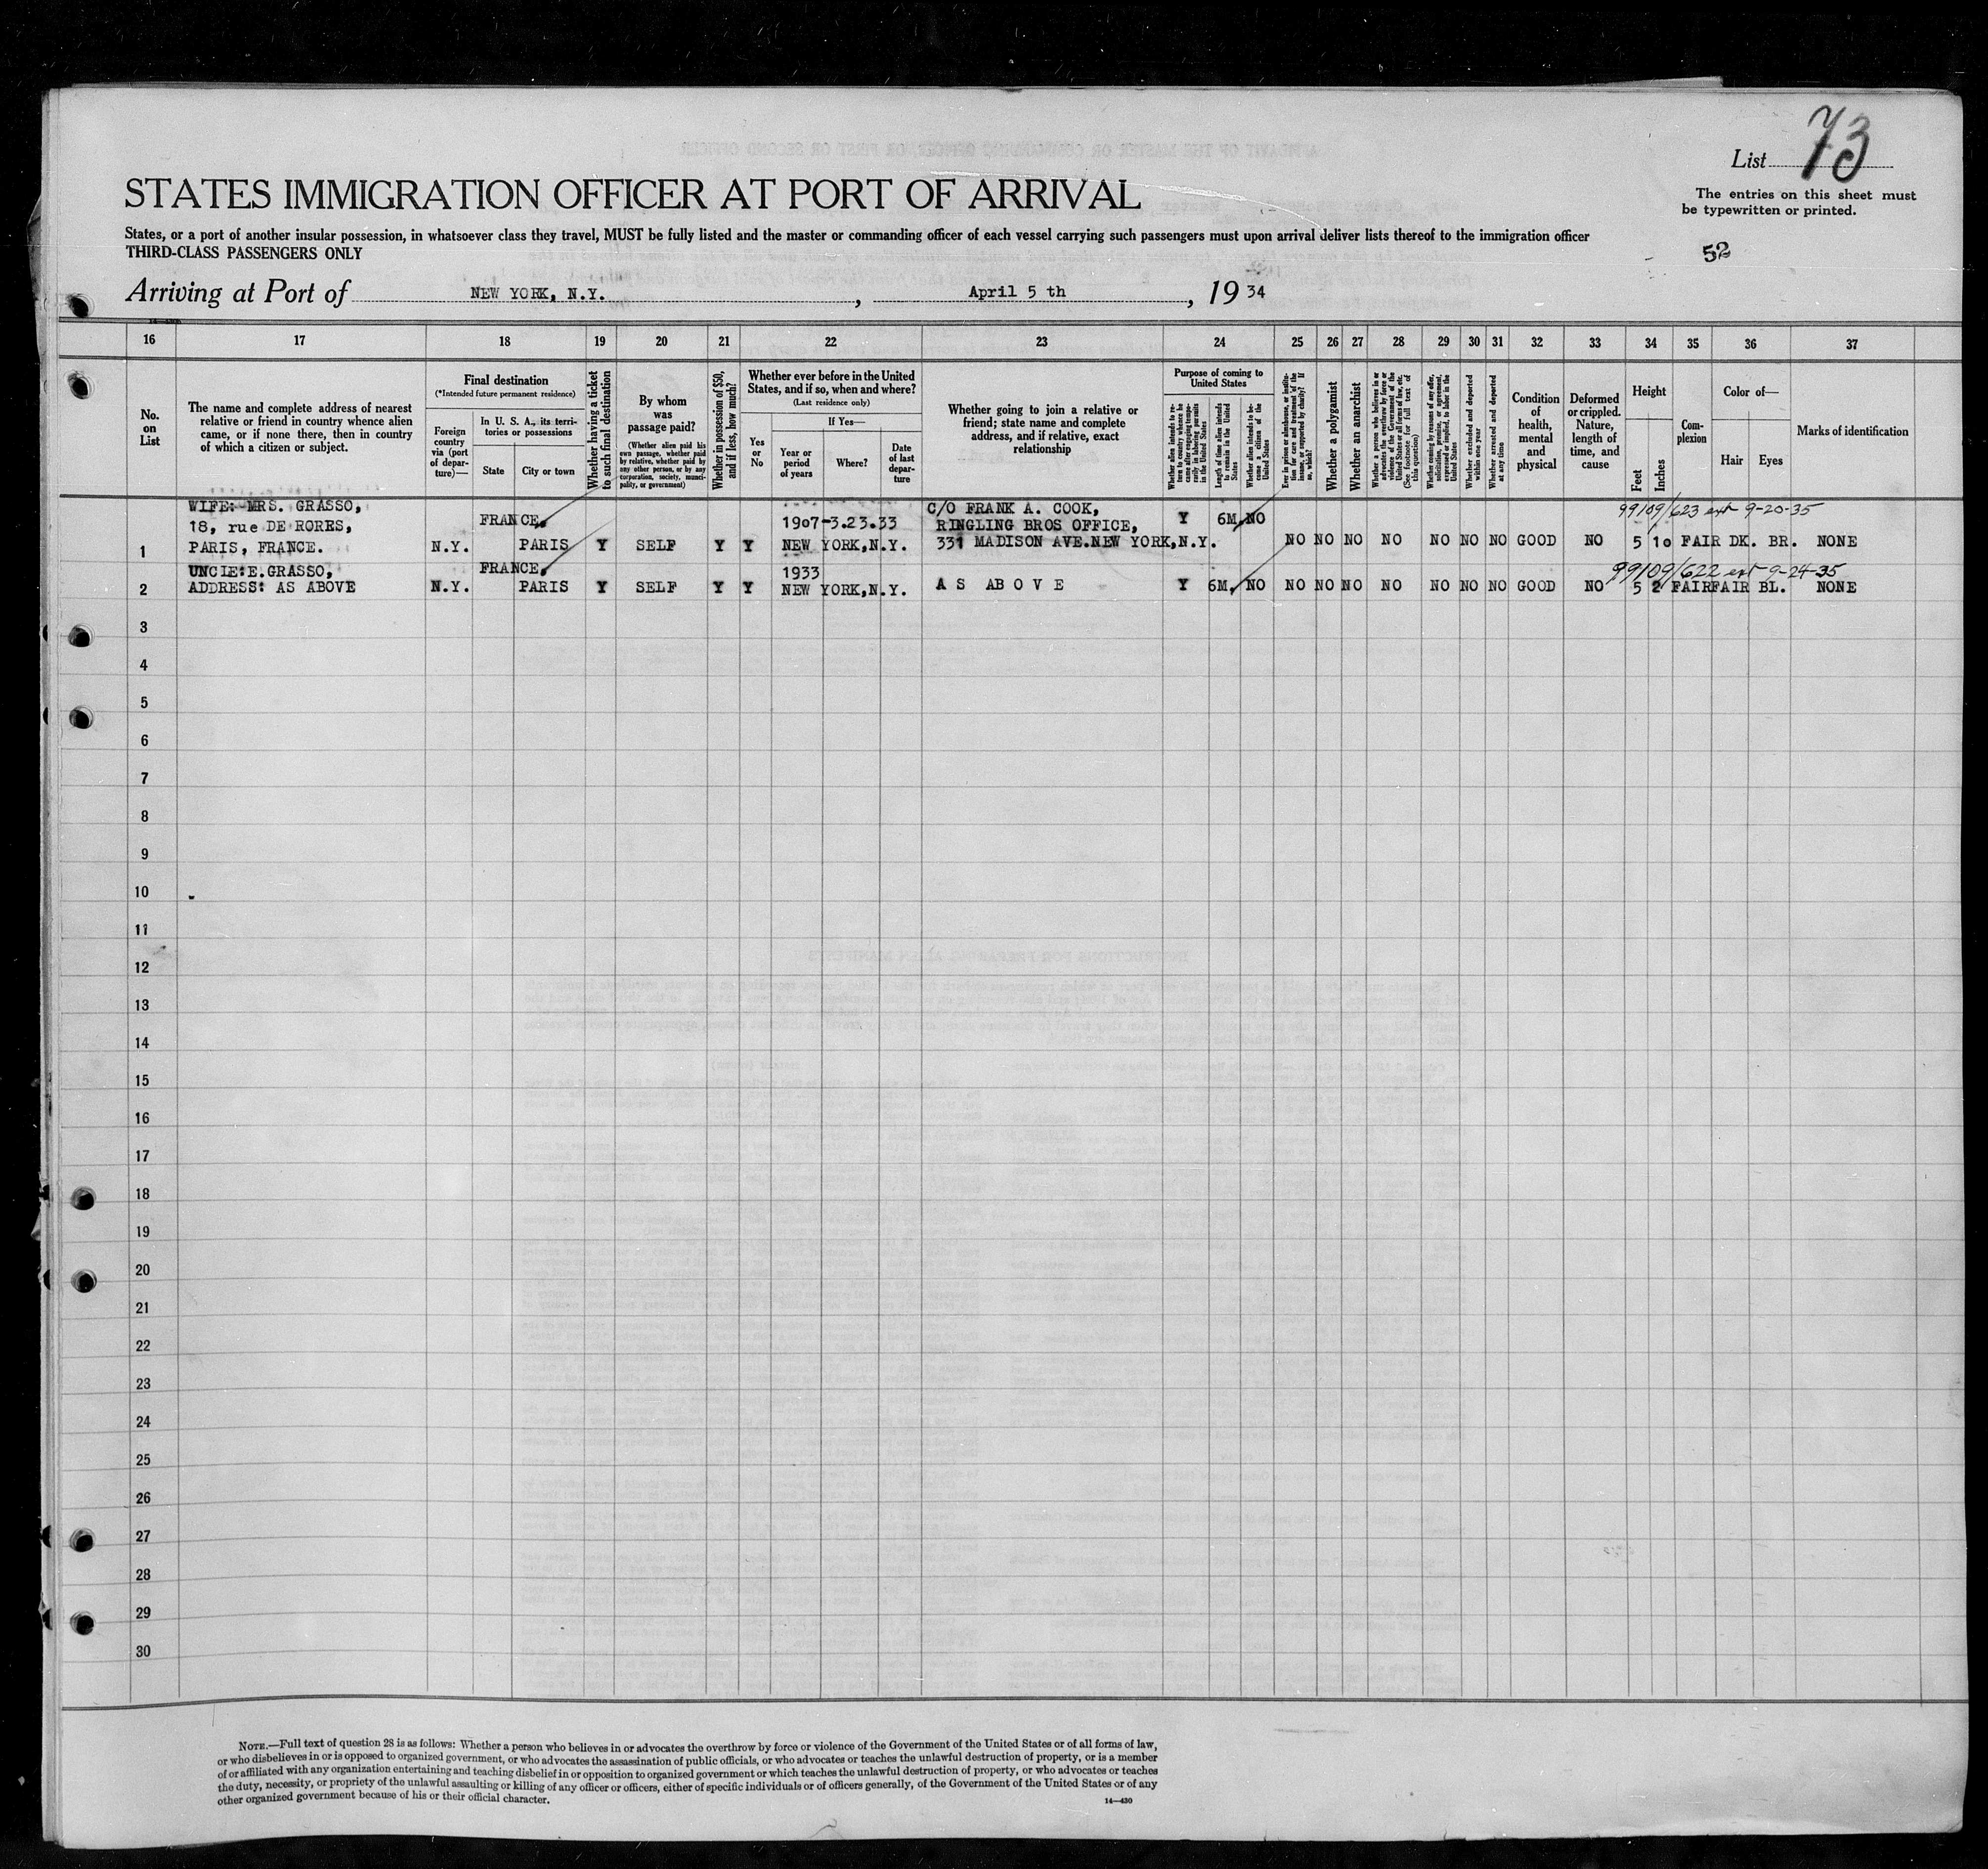 List 73
STATES IMMIGRATION OFFICER AT PORT OF ARRIVAL
The entries on this sheet must
be typewritten or printed.
States, or a port of another insular possession, in whatsoever class they travel, MUST be fully listed and the master or commanding officer of each vessel carrying such passengers must upon arrival deliver lists thereof to the immigration officer
THIRD-CLASS PASSENGERS ONLY
52
Arriving at Port of NEW YORK, N.Y., April 5 th, 1934
16 17 18 19 20 21 22 23 24 25 26 27 28 29 30 31 32 33 34 35 36 37
No. on List
The name and complete address of nearest
relative or friend in country whence alien
came, or if none there, then in country
of which a citizen or subject.
Final destination
(*Intended future permanent residence)
Foreign
country
via (port
of depar-
ture)—
In U. S. A., its terri-
tories or possessions
State
City or town
Whether having a ticket
to such final destination
By whom
was
passage paid?
(Whether alien paid his
own passage, whether paid
by relative, whether paid by
any other person, or by any
corporation, society, munici-
pality, or government)
Whether in possession of $50,
and if less, how much?
Whether ever before in the United
States, and if so, when and where?
(Last residence only)
Yes
or
No
If Yes—
Year or
period
of years
Where?
Date
of last
depar-
ture
Whether going to join a relative or
friend; state name and complete
address, and if relative, exact
relationship
Purpose of coming to
United States
Whether alien intends to re-
turn to country whence he
came after engaging tempo-
rarily in laboring pursuits
in the United States
Length of time alien intends
to remain in the United
States
Whether alien intends to be-
come a citizen of the
United States
Ever in prison or almshouse, or institu-
tion for care and treatment of the
insane, or supported by charity? If
so, which?
Whether a polygamist
Whether an anarchist
Whether a person who believes in or
advocates the overthrow by force or
violence of the Government of the
United States or all forms of law, etc.
(See footnote for full text of
this question)
Whether coming by reason of any offer,
solicitation, promise, or agreement,
expressed or implied, to labor in the
United States
Whether excluded and deported
within one year
Whether arrested and deported
at any time
Condition
of
health,
mental
and
physical
Deformed
or crippled.
Nature,
length of
time, and
cause
Height
Feet
Inches
Com-
plexion
Color of—
Hair
Eyes
Marks of identification
WIFE: MRS. GRASSO, C/O FRANK A. COOK, 99109/623 ext 9-20-35
18, rue DE RORES, FRANCE, 1907-3.23.33 RINGLING BROS OFFICE, Y 6M, NO
1 PARIS, FRANCE. N.Y. PARIS Y SELF Y Y NEW YORK, N.Y. 331 MADISON AVE.NEW YORK,N.Y. NO NO NO NO NO NO NO GOOD NO 5 10 FAIR DK. BR. NONE
UNCLE: E.GRASSO, FRANCE, 1933 99109/622 ext 9-24-35
2 ADDRESS: AS ABOVE N.Y. PARIS Y SELF Y Y NEW YORK,N.Y. A S AB O V E Y 6M, NO NO NO NO NO NO NO NO GOOD NO 5 2 FAIR FAIR BL. NONE
3
4
5
6
7
8
9
10
11
12
13
14
15
16
17
18
19
20
21
22
23
24
25
26
27
28
29
30
NOTE.—Full text of question 28 is as follows: Whether a person who believes in or advocates the overthrow by force or violence of the Government of the United States or of all forms of law,
or who disbelieves in or is opposed to organized government, or who advocates the assassination of public officials, or who advocates or teaches the unlawful destruction of property, or is a member
of or affiliated with any organization entertaining and teaching disbelief in or opposition to organized government or which teaches the unlawful destruction of property, or who advocates or teaches
the duty, necessity, or propriety of the unlawful assaulting or killing of any officer or officers, either of specific individuals or of officers generally, of the Government of the United States or of any
other organized government because of his or their official character.
14—430